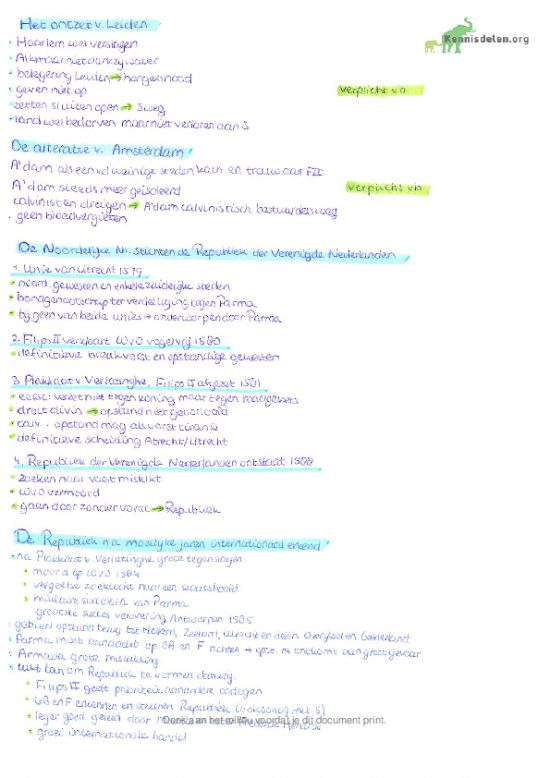 Het ontzet v. Leiden
Kennisdelen.org
· Haarlem wel verslagen
· Alkmaar niet dankzij water
· belegering Leiden → hongersnood
· geven niet op
verplicht vb
· zetten sluizen open → S weg
· land wel bedorven maar niet verloren aan S
De alteratie v. Amsterdam
· A'dam als een vd weinige steden kath. en trouw aan FII
· A'dam steeds meer geïsoleerd
verplicht vb
· calvinisten dreigen → A'dam calvinistisch bestuurders weg
· geen bloedvergieten
De Noordelijke Nl. stichten de Republiek der Verenigde Nederlanden
1. Unie van Utrecht 1579
· noord. gewesten en enkele zuidelijke steden
· bondgenootschap ter verdediging tegen Parma
· bij geen van beide unies → onderworpen door Parma
2. Filips II verklaart WvO vogelvrij 1580
· definitieve breuk vorst en opstandige gewesten
3. Plakkaat v Verlatinghe, Filips II afgezet 1581
· eerst: verzet niet tegen koning maar tegen raadgevers
· droit divin → opstand niet geoorloofd
· calv. : opstand mag als vorst tiran is
· definitieve scheiding Atrecht/Utrecht
4. Republiek der Verenigde Nederlanden ontstaat 1588
· zoeken naar vorst mislukt
· WvO vermoord
· gaan door zonder vorst → Republiek
De Republiek na moeilijke jaren internationaal erkend
· na Plakkaat v Verlatinghe grote tegenslagen
· moord op WvO 1584
· vergeefse zoektocht naar een staatshoofd
· militaire successen van Parma
grootste succes verovering Antwerpen 1585
· gebied opstand terug tot Holland, Zeeland, Utrecht en delen Overijssel en Gelderland
· Parma moet aandacht op GB en F richten → opst. nl ontkomt aan groot gevaar
· Armada grote mislukking
· lukt om Republiek te vormen dankzij:
· Filips II geeft prioriteit aan andere oorlogen
· GB en F erkennen en steunen Republiek (ook oorlog met S)
· leger goed geleid door
Denk aan het milieu voordat je dit document print.
· groei internationale handel